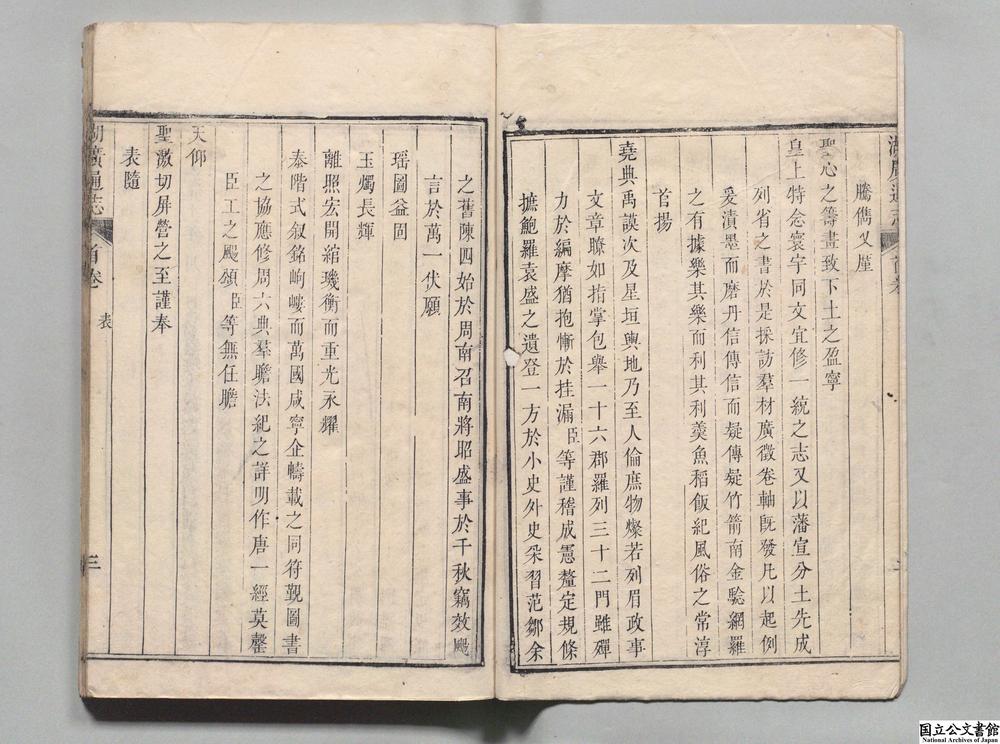 湖廣通志 首卷 二
騰儁乂厘
聖心之籌畫致下土之盈寧
皇上特念寰宇同文宜修一統之志又以藩宣分土先成
列省之書於是採訪羣材廣徵卷軸旣發凡以起例
爰漬墨而磨丹信傳信而疑傳疑竹箭南金駼網羅
之有據樂其樂而利其利羮魚稻飯紀風俗之常淳
首揚
堯典禹謨次及星垣輿地乃至人倫庶物燦若列眉政事
文章瞭如指掌包舉一十六郡羅列三十二門雖殫
力於編摩猶抱慚於挂漏臣等謹稽成憲釐定規條
摭鮑羅袁盛之遺登一方於小史外史采習范鄒余
之舊陳四始於周南召南將昭盛事於千秋竊效颺
言於萬一伏願
瑶圖益固
玉燭長輝
離照宏開綰璣衡而重光永耀
泰階式叙銘岣嶁而萬國咸寧企幬載之同符觐圖書
之協應修周六典羣瞻法紀之詳明作唐一經莫罄
臣工之颺頌臣等無任瞻
天仰
聖激切屏營之至謹奉
表隨
湖廣通志 首卷 表 三
国立公文書館
National Archives of Japan